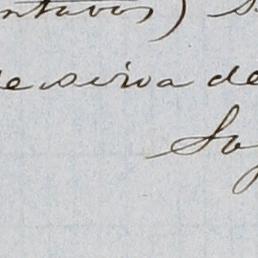 ntavos) s
e sirva de
So